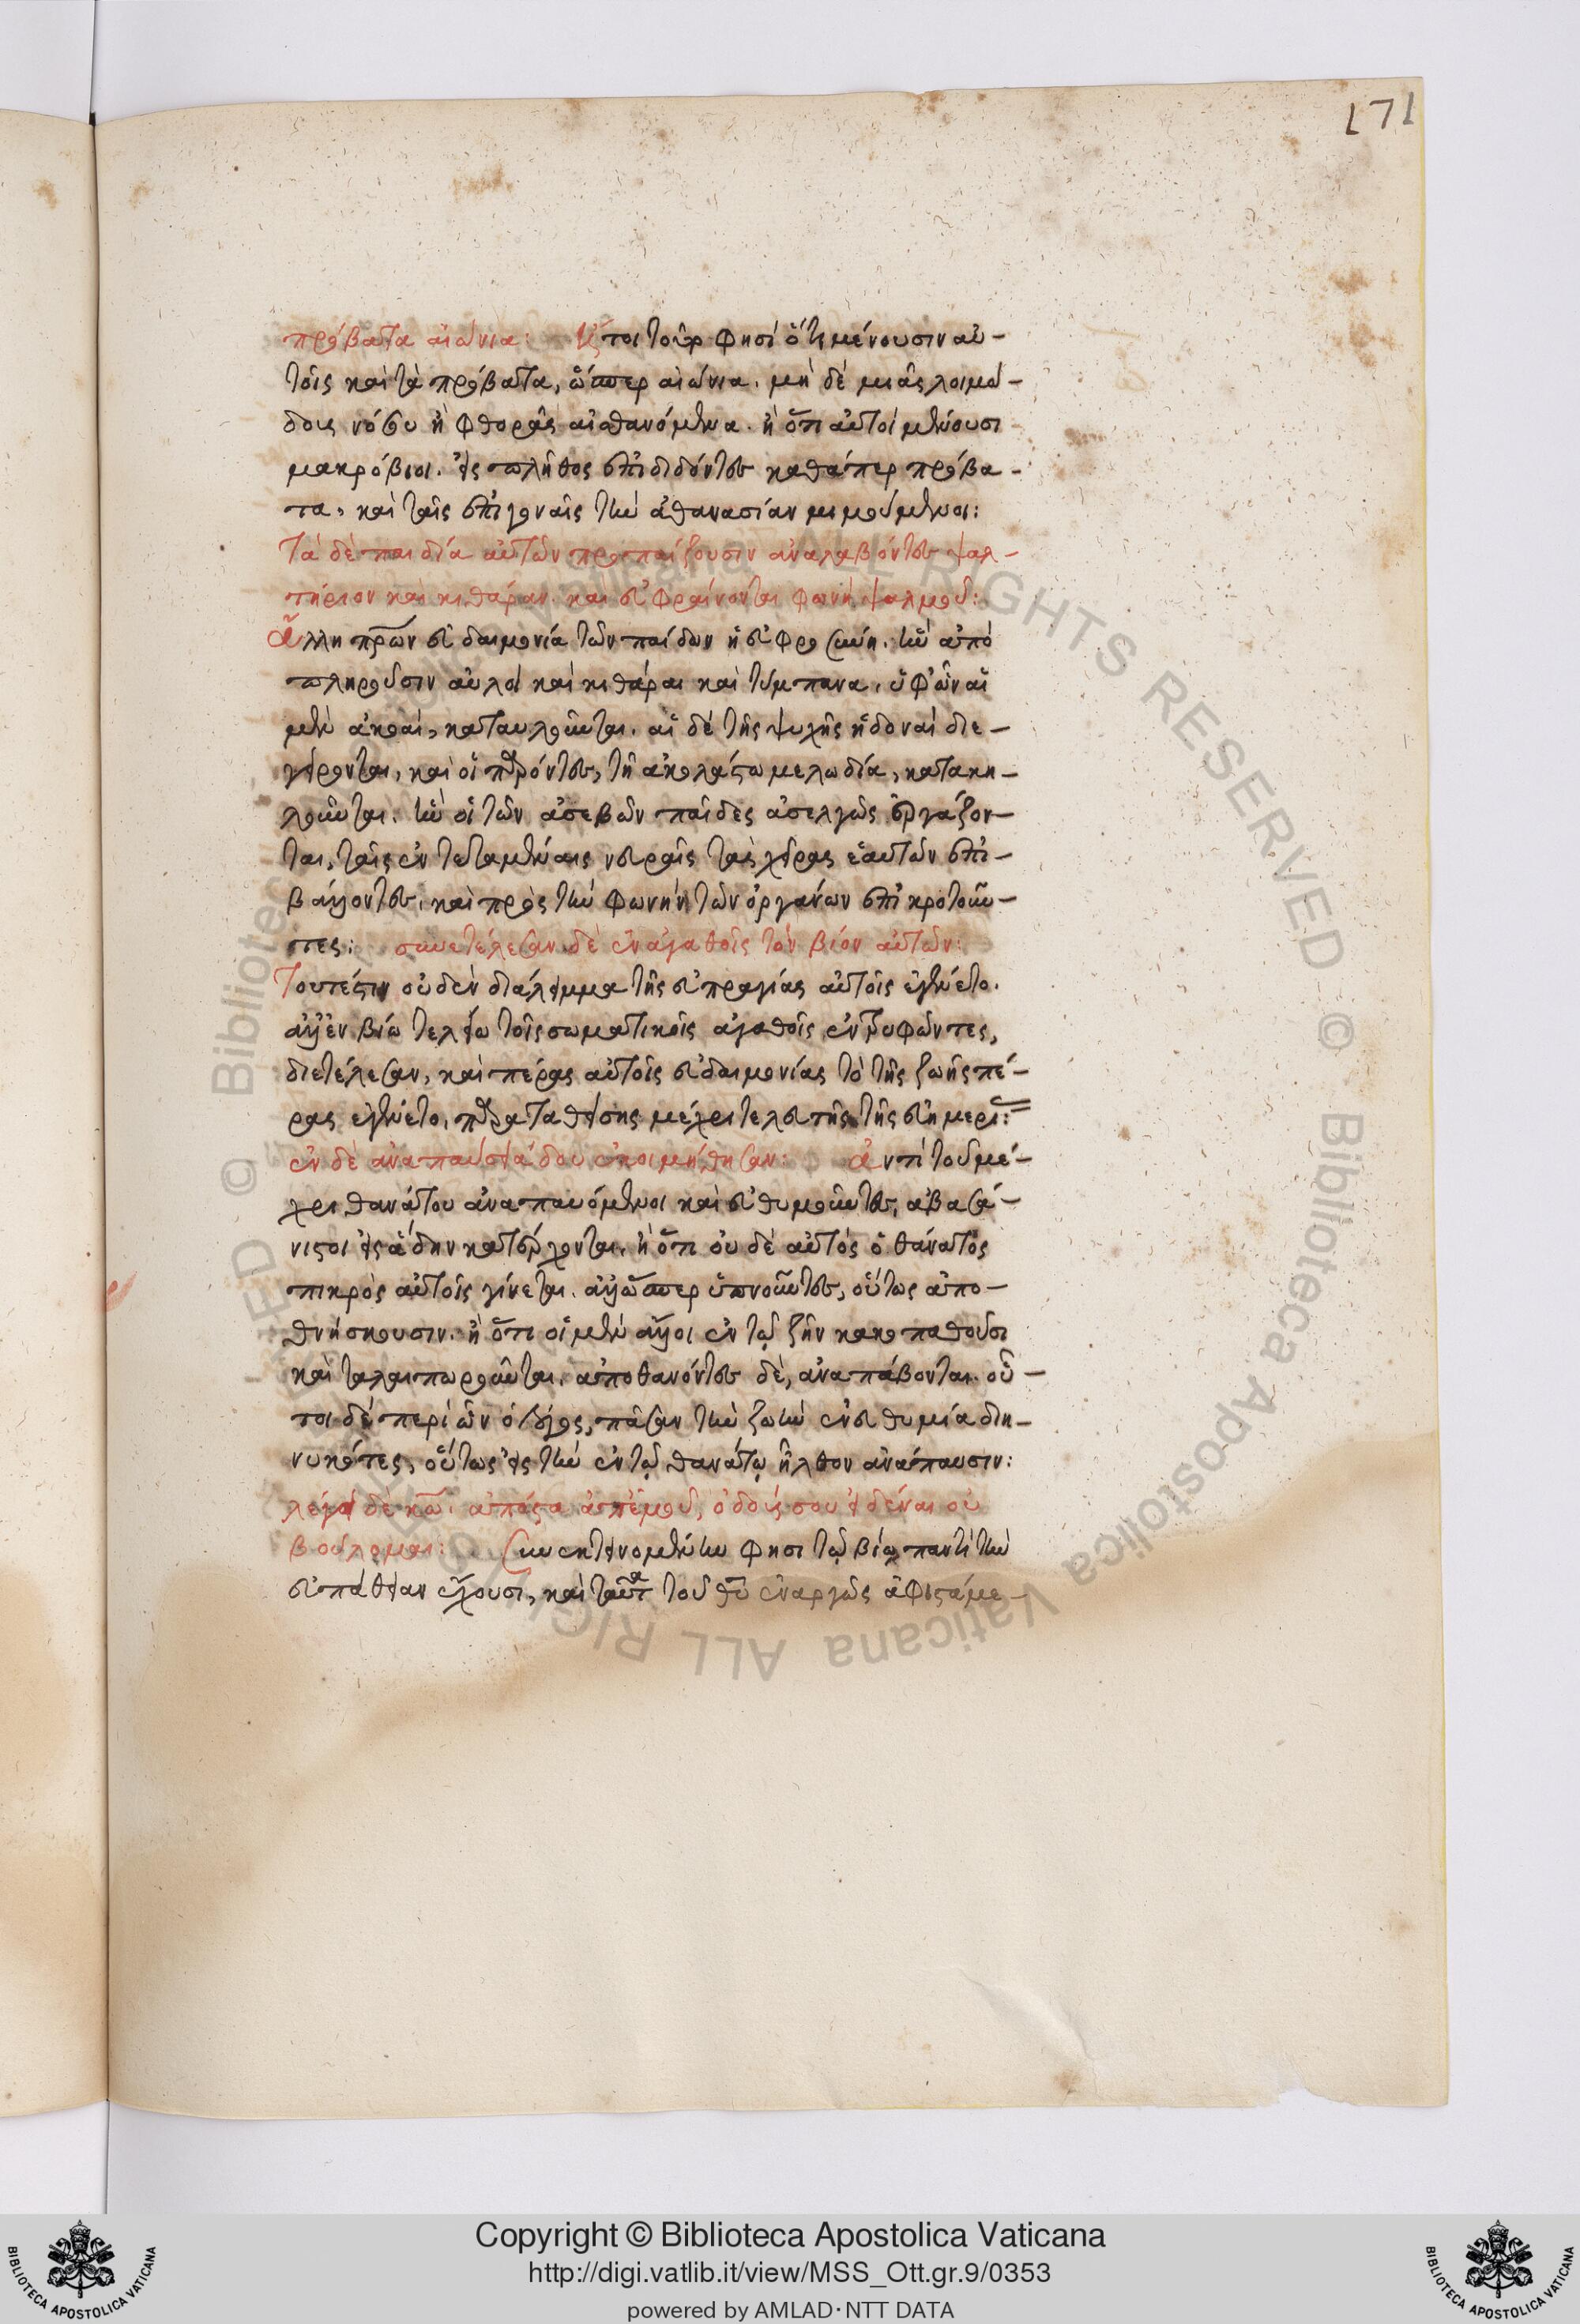 171
πρόβατα αἰώνια: ἤτοι τοῦτο φησὶ ὅτι μένουσιν αὐ-
τοῖς καὶ τὰ πρόβατα, ὥσπερ αἰώνια. μὴ δὲ μιᾶς λοιμώ-
δους νόσου ἢ φθορᾶς αἰσθανόμενα. ἢ ὅτι αὐτοὶ μένουσι
μακρόβιοι. εἰς πλῆθος ἐπιδιδόντες καθάπερ πρόβα-
τα, καὶ ταῖς ἐπιγοναῖς τὴν ἀθανασίαν μιμούμενοι:
Τὰ δὲ παιδία αὐτῶν προπαίζουσιν ἀναλαβόντες ψαλ-
τήριον καὶ κιθάραν. καὶ εὐφραίνονται φωνῇ ψαλμοῦ:
ἄλλη πρῶν εὐδαιμονία τῶν παίδων ἡ εὐφροσύνη. ἣν ἀπο
πληροῦσιν αὐλοὶ καὶ κιθάραι καὶ τύμπανα. ὑφ' ὧν αἱ
μὲν ἀκοαὶ, καταυλοῦνται. αἱ δὲ τῆς ψυχῆς ἡδοναὶ διε-
γείρονται, καὶ οἱ παρόντες, τῇ ἀκολάστω μελωδία, κατακη-
λοῦνται. ἣν οἱ τῶν ἀσεβῶν παῖδες ἀσελγῶς ἐργάζον-
ται, ταῖς ἐντεταμέναις νευραῖς τὰς χεῖρας ἑαυτῶν ἐπι-
βάλλοντες. καὶ πρὸς τὴν φωνὴν τῶν ὀργάνων ἐπικροτοῦν-
τες: συνετέλεσαν δὲ ἐν ἀγαθοῖς τὸν βίον αὐτῶν:
Τουτέστιν οὐδὲν διάλειμμα τῆς εὐπραγίας αὐτοῖς ἐγένετο.
ἀλλ' ἐν βίω τελείω τοῖς σωματικοῖς ἀγαθοῖς ἐντρυφῶντες,
διετέλεσαν, καὶ πέρας αὐτοῖς εὐδαιμονίας τὸ τῆς ζωῆς πέ-
ρας ἐγένετο, παραταθείσης μέχρι τελευτῆς τῆς εὐημερί:
ἐν δὲ ἀναπαύσει ἅδου ἐκοιμήθησαν: ἀντὶ τοῦ μέ-
χρι θανάτου ἀναπαυόμενοι καὶ εὐθυμοῦντες, ἀβασά-
νιστοι εἰς ἅδην κατέρχονται. ἢ ὅτι οὐ δὲ αὐτὸς ὁ θάνατος
πικρὸς αὐτοῖς γίνεται. ἀλλ' ὥσπερ ὑπνοῦντες, οὕτως ἀπο-
θνήσκουσιν. ἢ ὅτι οἱ μὲν ἄλλοι ἐν τῷ ζῆν κακοπαθοῦσι
καὶ ταλαιπωροῦνται. ἀποθανόντες δὲ, ἀναπάβονται. οὗ-
τοι δὲ περὶ ὧν ὁ λόγος, πᾶσαν τὴν ζωὴν ἐν εὐθυμία διη-
νυκότες, οὕτως εἰς τὴν ἐν τῷ θανάτῳ ἦλθον ἀνάπαυσιν:
λέγει δὲ κῶ. ἀπόστα ἀπ' ἐμοῦ, ὁδούς σου εἰδέναι οὐ
βούλομαι: συνεκτεινομένην φησὶ τῷ βίῳ παντὶ τὴν
εὐπάθειαν ἔχουσι, καὶ ταῦτα τοῦ θῦ ἐναργῶς ἀφιστάμε-
Copyright © Biblioteca Apostolica Vaticana
http://digi.vatlib.it/view/MSS_Ott.gr.9/0353
powered by AMLAD·NTT DATA